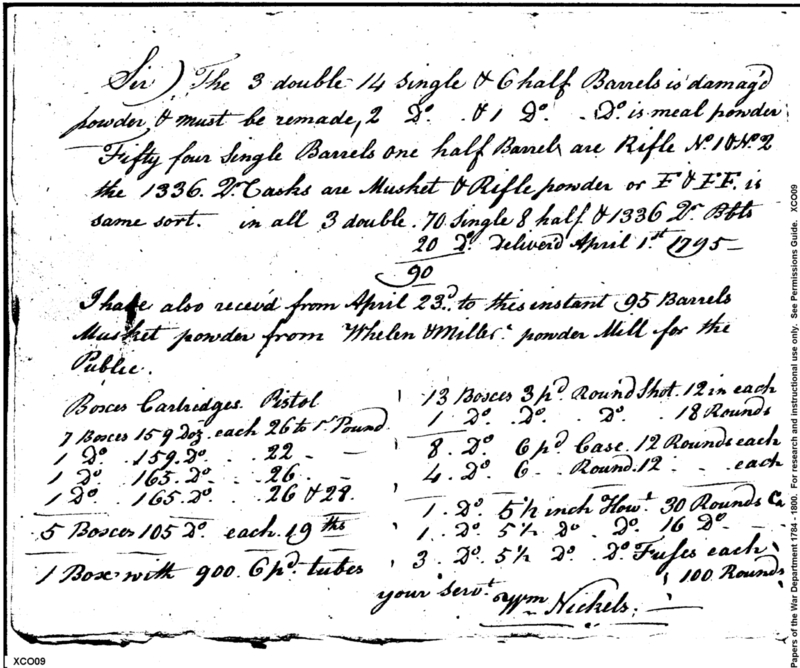 Sir) The 3 double 14 Single & 6 half Barrels is damag'd
powder & must be remade, 2 Do. & 1 Do. Do. is meal powder
Fifty four Single Barrels one half Barrel are Rifle No. 1 & No. 2
the 1336. Qr. Casks are Musket & Rifle powder or F & FF. is
same sort. in all 3 double. 70 Single 8 half & 1336 Qr. Bbls
20 Do. Deliverd April 1st 1795—
90
I have also receivd from April 23d. to this instant 95 Barrels
Musket powder from Whelen & Millers powder Mill for the
Public.
Boxces Cartridges. Pistol
7 Boxces 159 Doz. each 26 to 1 Pound
1 Do. 159. Do. 22 —
1 Do. 165. Do. 26 —
1 Do. 165. Do. 26 & 28.
5 Boxces 105 Do. each. 19ths
1 Box with 900. 6 pd. tubes
13 Boxces 3 pd. Round Shot. 12 in each
1 Do. Do. Do. 18 Rounds
8. Do. 6 pd. Case. 12 Rounds each
4. Do. 6 - Round. 12 - - each
1. Do. 5½ inch Howt. 30 Rounds Ca
1. Do. 5½ Do Do. 16 Do —
3. Do. 5½ Do. Do. Fuses each
100 Rounds
your Servt.
Wm Nickels.
XCO09
Papers of the War Department 1784 - 1800. For research and instructional use only. See Permissions Guide. XCO09